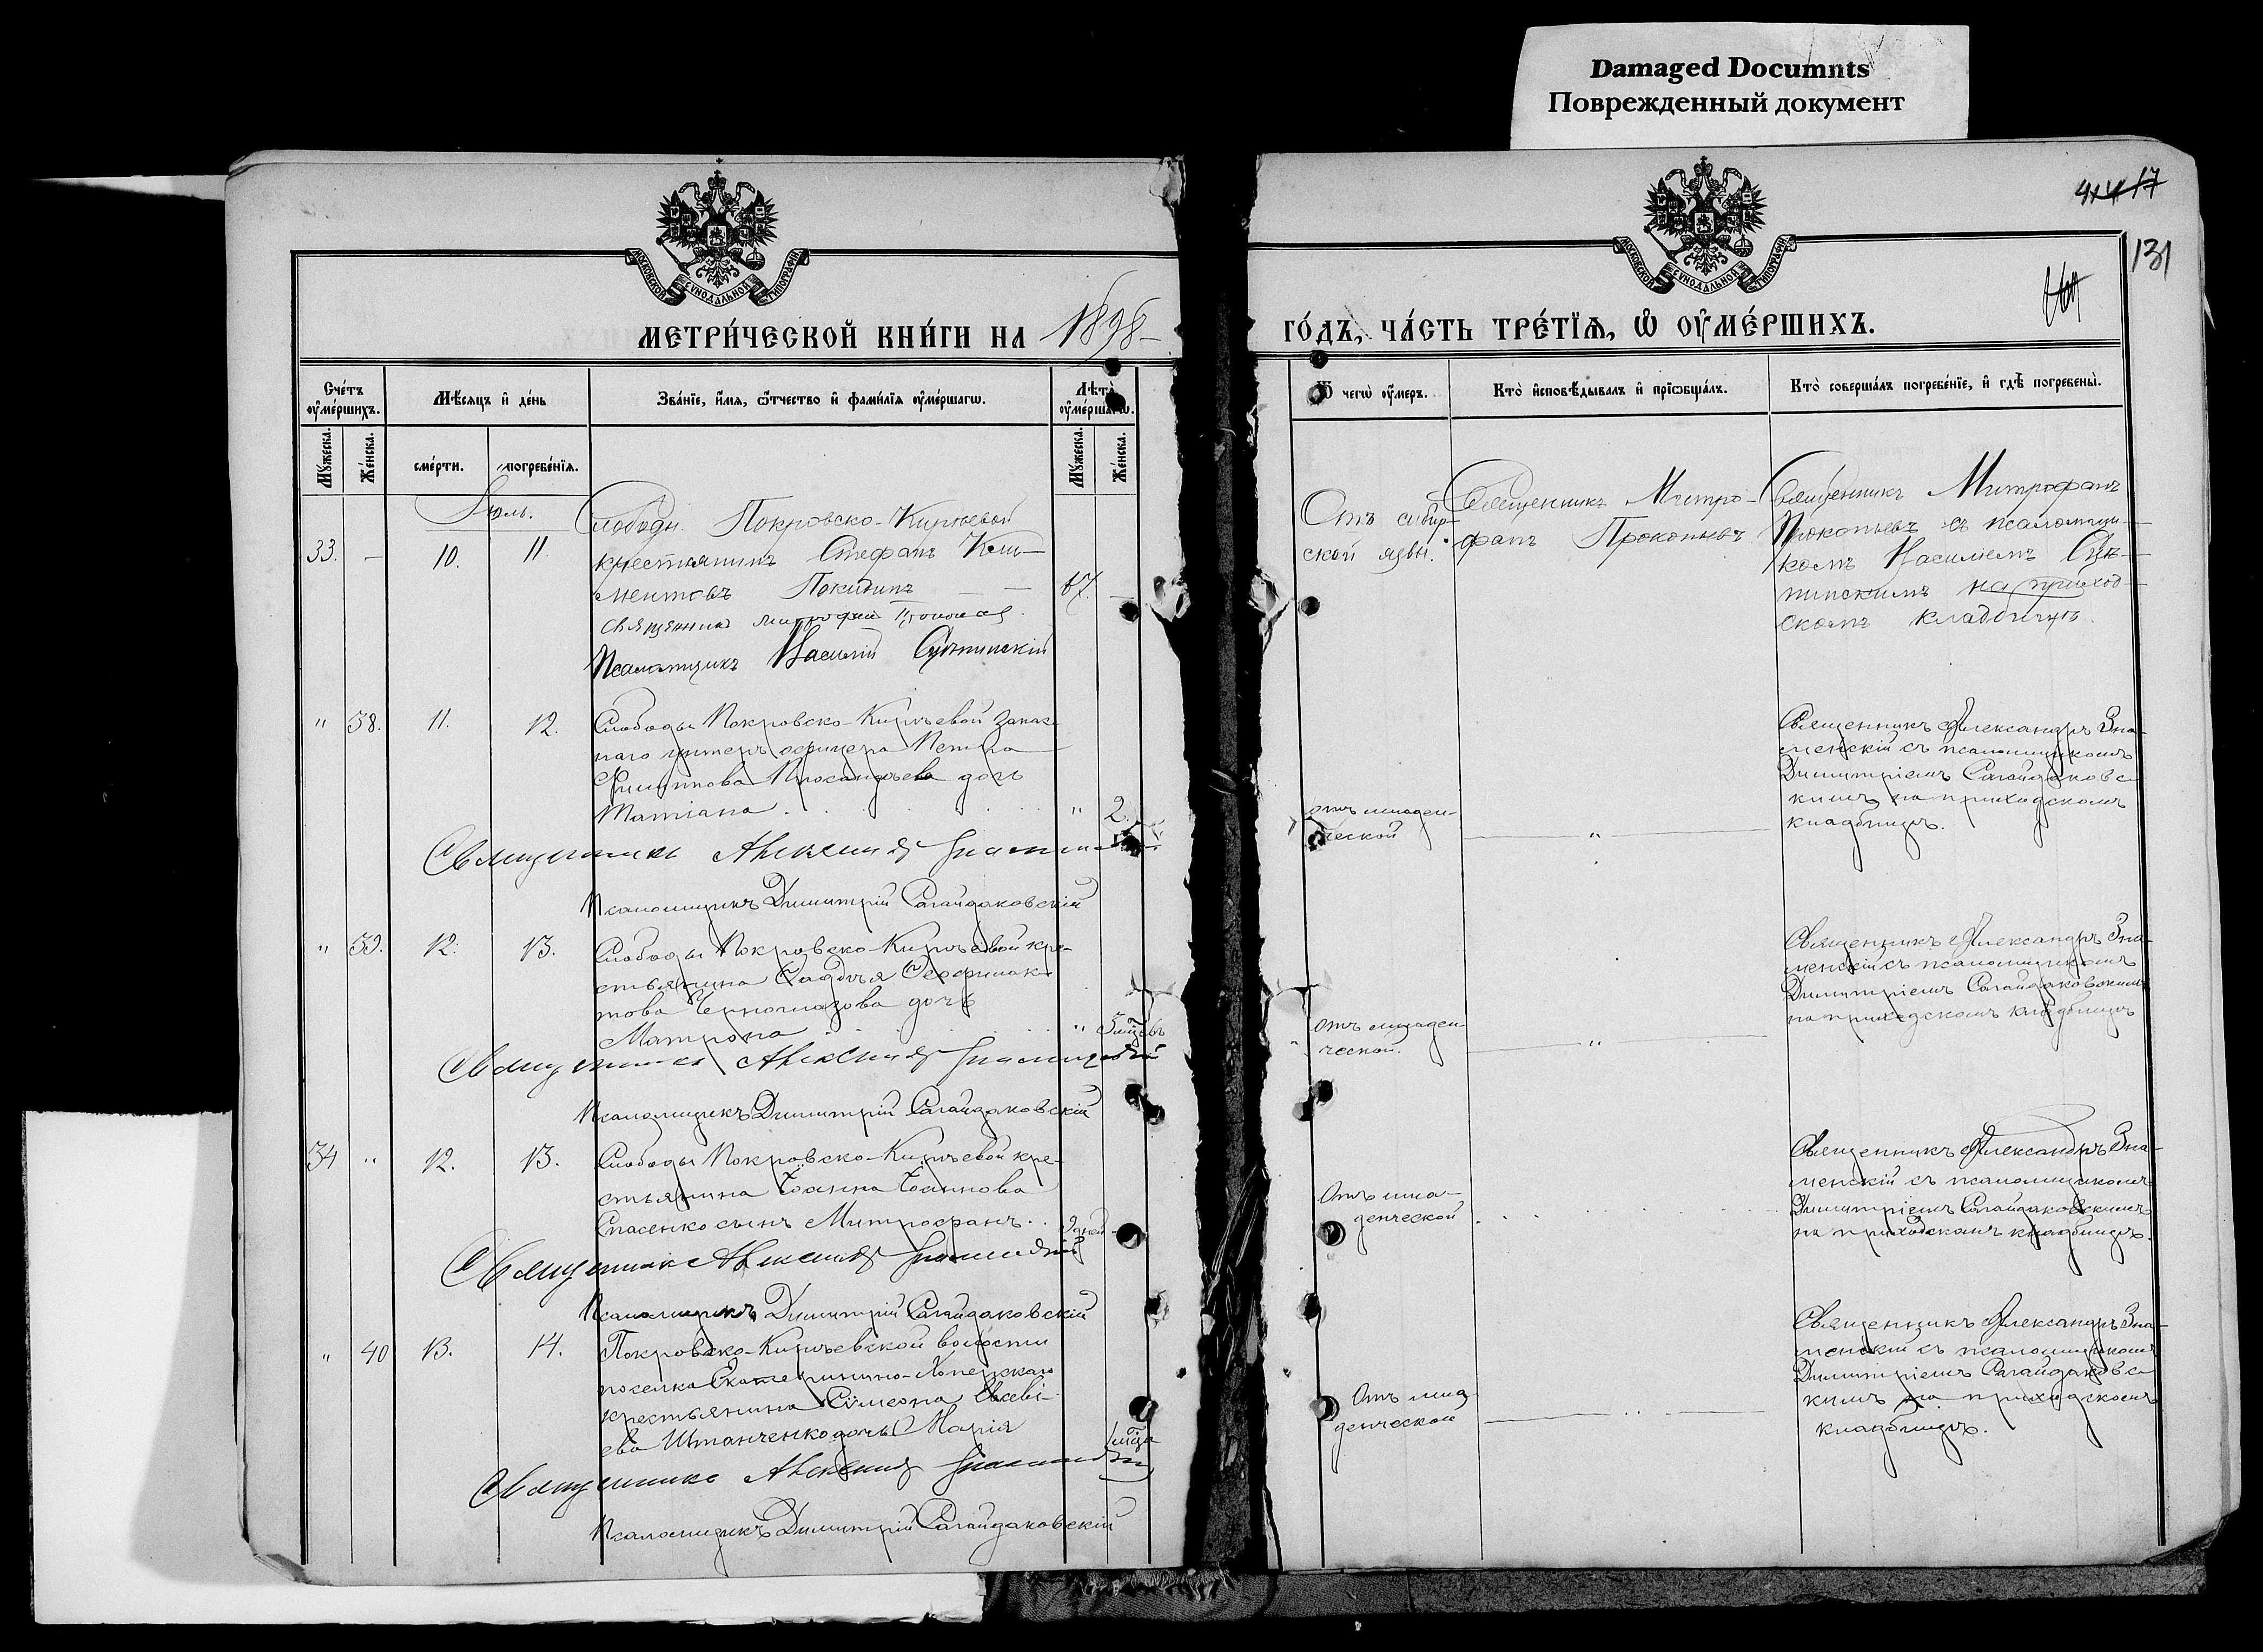 Damaged Documnts
Поврежденный документ
414 17
131
МОСКОВСКОЙ СУНОДАЛЬНОЙ ТИПОГРАФІИ
МОСКОВСКОЙ СУНОДАЛЬНОЙ ТИПОГРАФІИ
МЕТРИ́ЧЕСКОЙ КНИ́ГИ НА 1898
ГО́ДЪ, ЧА́СТЬ ТРЕ́ТІѦ, Ѡ ОУМЕ́РШИХЪ.
Сче́тъ оуме́ршихъ.
Мѣсяцъ и де́нь
Зва́ніе, и́мя, ѿчество и фами́лія оуме́ршагѡ.
Лѣта̀ оуме́ршагѡ.
Ѿ чегѡ̀ оу́меръ.
Кто̀ исповѣ́дывалъ и пріѡбща́лъ.
Кто̀ соверша́лъ погребе́ніе, и гдѣ̀ погребены̀.
Му́жеска.
Же́нска.
сме́рти.
погребе́нія.
Му́жеска.
Же́нска.
Іюль.
33. – 10. 11.
Слободы Покровско-Киреевой
крестьянинъ Стефанъ Кли-
ментовъ
67.
Священникъ Митрофанъ Прокопьев
Псаломщикъ Василій
Отъ сибир-
ской язвы.
Священникъ Митро-
фанъ Прокопьевъ
Священникъ Митрофанъ
Прокопьевъ съ псаломщи-
комъ Василіемъ
на приход-
скомъ кладбищѣ.
" 38. 11. 12.
Слободы Покровско-Кирѣевой запас-
наго унтеръ офицера Петра
Филиппова дочь
Татіана " 2.
Священникъ Александр Знаменскій
Псаломщикъ Димитрій Сагайдаковскій
отъ младен-
ческой
"
Священникъ Александръ Зна-
менскій съ псаломщикомъ
Димитріемъ Сагайдаковс-
кимъ на приходскомъ
кладбищѣ.
" 39. 12. 13.
Слободы Покровско-Кирѣевой кре-
стьянина Феофилак-
това Черноглазова дочь
Матрона "
Священникъ Александр Знаменскій
Псаломщикъ Димитрій Сагайдаковскій
Отъ младен-
ческой.
"
Священникъ Александръ Зна-
менскій съ псаломщикомъ
Димитріемъ Сагайдаковскимъ
на приходскомъ кладбищѣ
34 " 12. 13.
Слободы Покровско-Кирѣевой кре-
стьянина Іоанна Іоаннова
Спасенко сынъ Митрофанъ
Священникъ Александр Знаменскій
Псаломщикъ Димитрій Сагайдаковскій
Отъ мла-
денческой
Священникъ Александръ Зна-
менскій съ псаломщикомъ
Димитріемъ Сагайдаковскимъ
на приходскомъ кладбищѣ.
" 40 13. 14.
Покровско-Кирѣевской волости
поселка Екатеринино-Хопёрскаго
крестьянина Сѵмеона Евсеві-
ева Штанченко дочь Марія
Священникъ Александр Знаменскій
Псаломщикъ Димитрій Сагайдаковскій
Отъ мла-
денческой
Священникъ Александръ Зна-
менскій съ псаломщикомъ
Димитріемъ Сагайдаковс-
кимъ на приходскомъ
кладбищѣ.